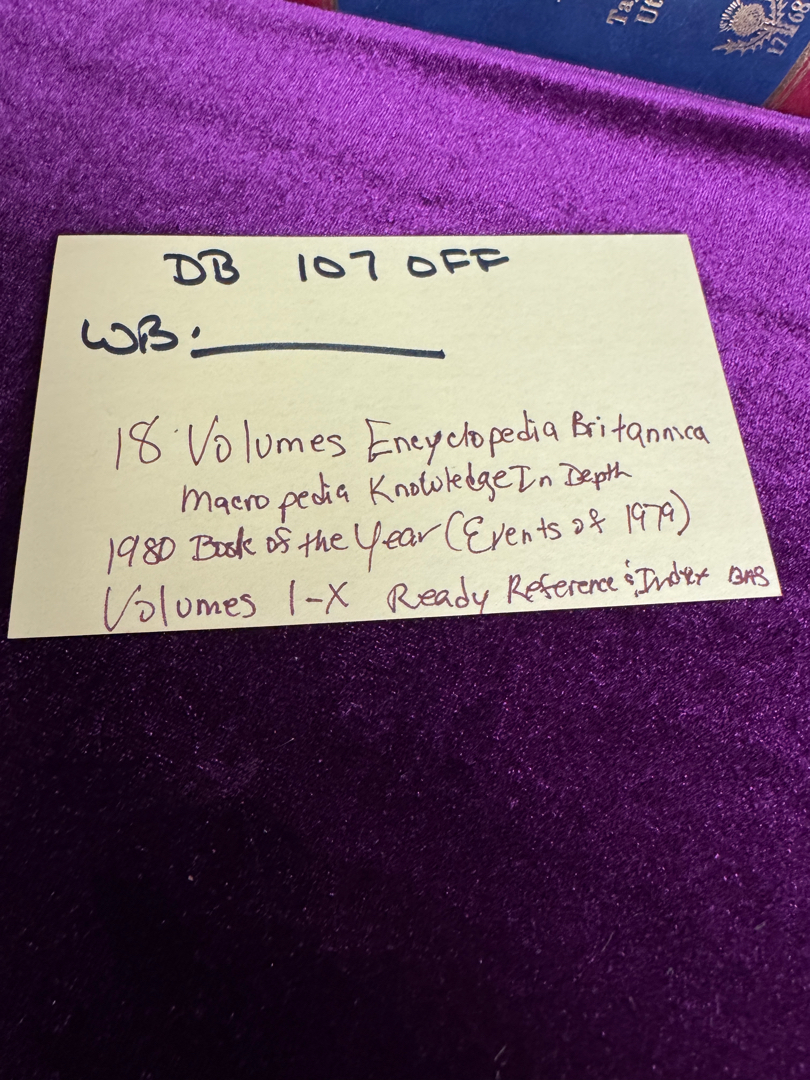 Ta
Ut
1768
DB 107 OFF
WB:
18 Volumes Encyclopedia Britannica
Macropedia Knowledge In Depth
1980 Book of the Year (Events of 1979)
Volumes I-X Ready Reference & Index